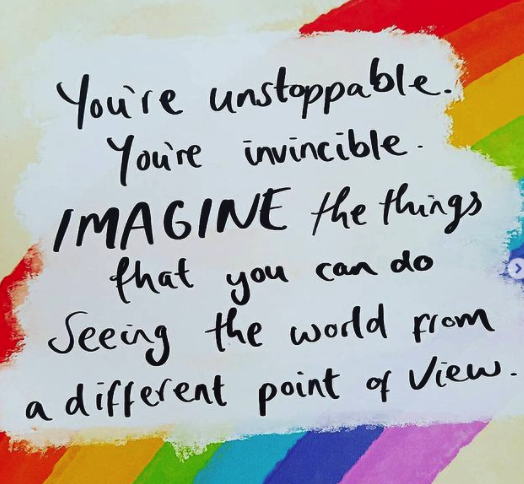 You're unstoppable.
You're invincible.
IMAGINE the things
that you can do
Seeing the world from
a different point of view.